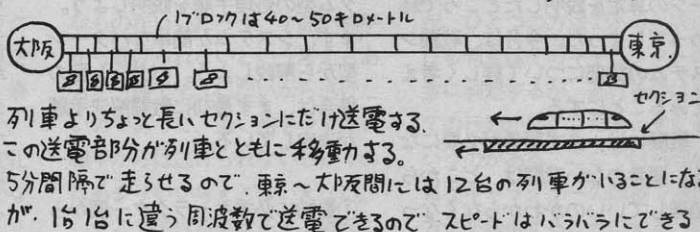 1ブロックは40～50キロメートル
大阪
東京.
セクション
列車よりちょっと長いセクションにだけ送電する.
この送電部分が列車とともに移動する。
5分間隔で走らせるので、東京～大阪間には12台の列車がいることにな
が、1台1台に違う周波数で送電できるので スピードはバラバラにできる